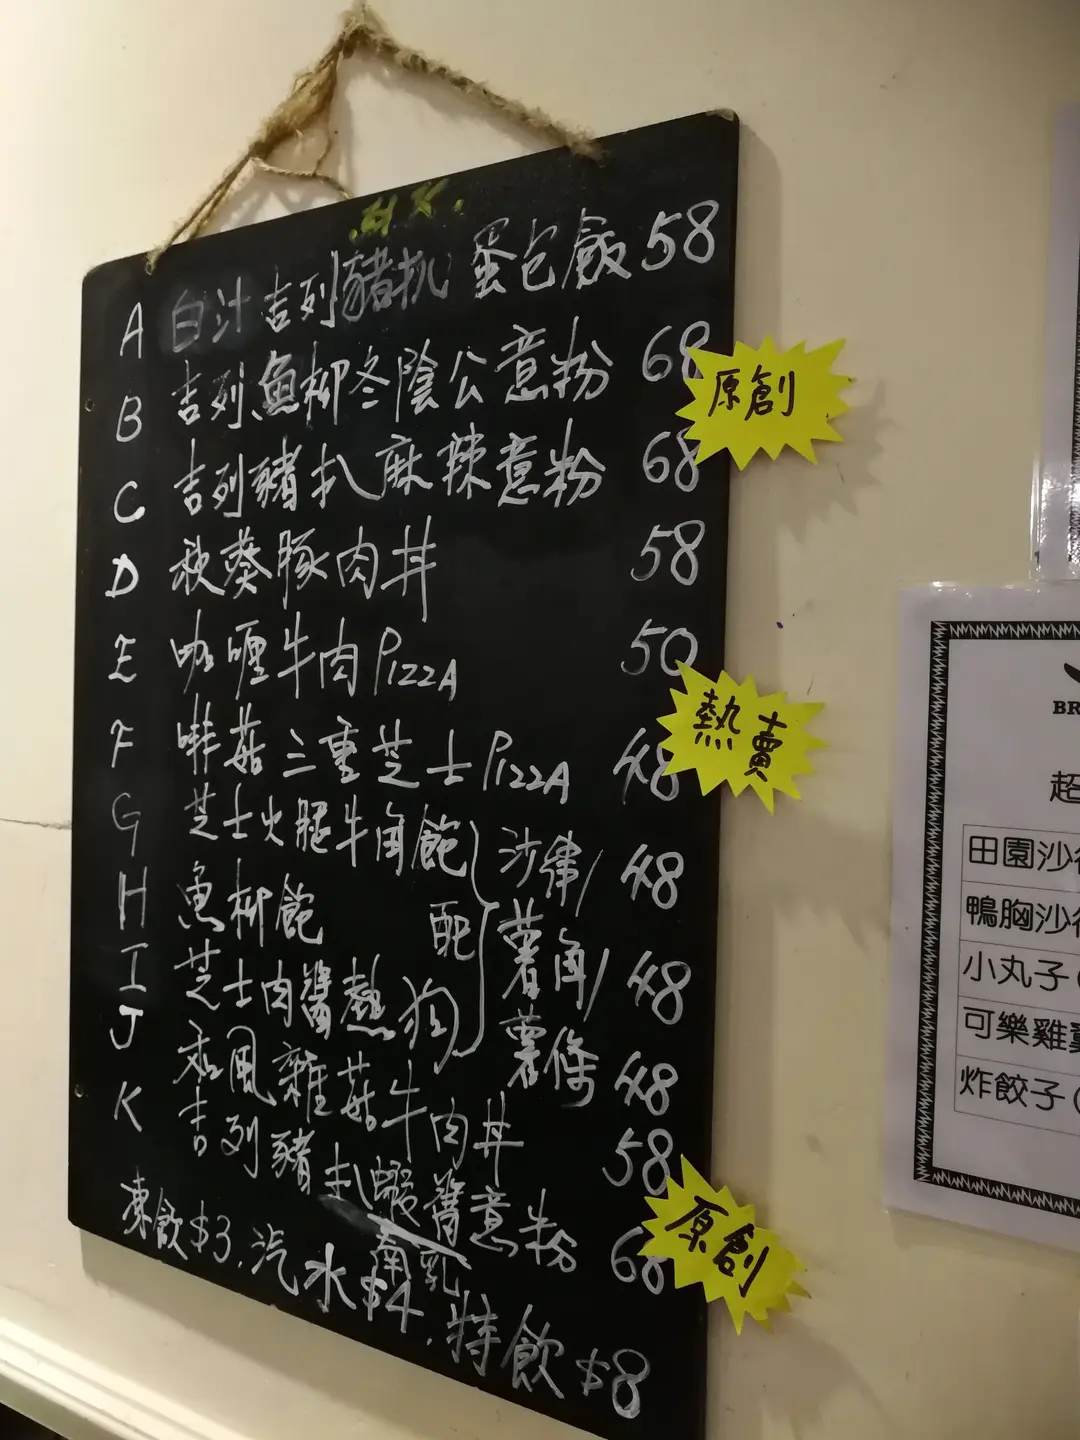 A 白汁吉列豬扒 蛋包飯 58
B 吉列魚柳冬陰公意粉 68
原創
C 吉列豬扒麻辣意粉 68
D 秋葵豚肉丼 58
E 咖喱牛肉PIZZA 50
熱賣
F 啡菇三重芝士PIZZA 48
G 芝士火腿牛角飽 48
H 魚柳飽 48
I 芝士肉醬熱狗 48
配 沙律/
薯角/
薯條
J 和風雜菇牛肉丼 58
K 吉列豬扒蝦醬意粉 68
南乳
原創
凍飲$3.汽水$4.特飲$8
BR
超
田園沙
鴨胸沙
小丸子(
可樂雞
炸餃子(